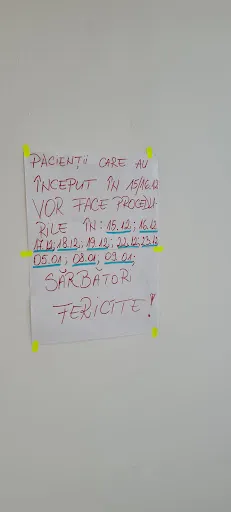 PACIENȚII CARE AU
ÎNCEPUT ÎN 15/16.12
VOR FACE PROCEDU-
RILE ÎN: 15.12; 16.12
17.12; 18.12; 19.12; 22.12; 23.12
05.01; 08.01; 09.01;
SĂRBĂTORI
FERICITE!